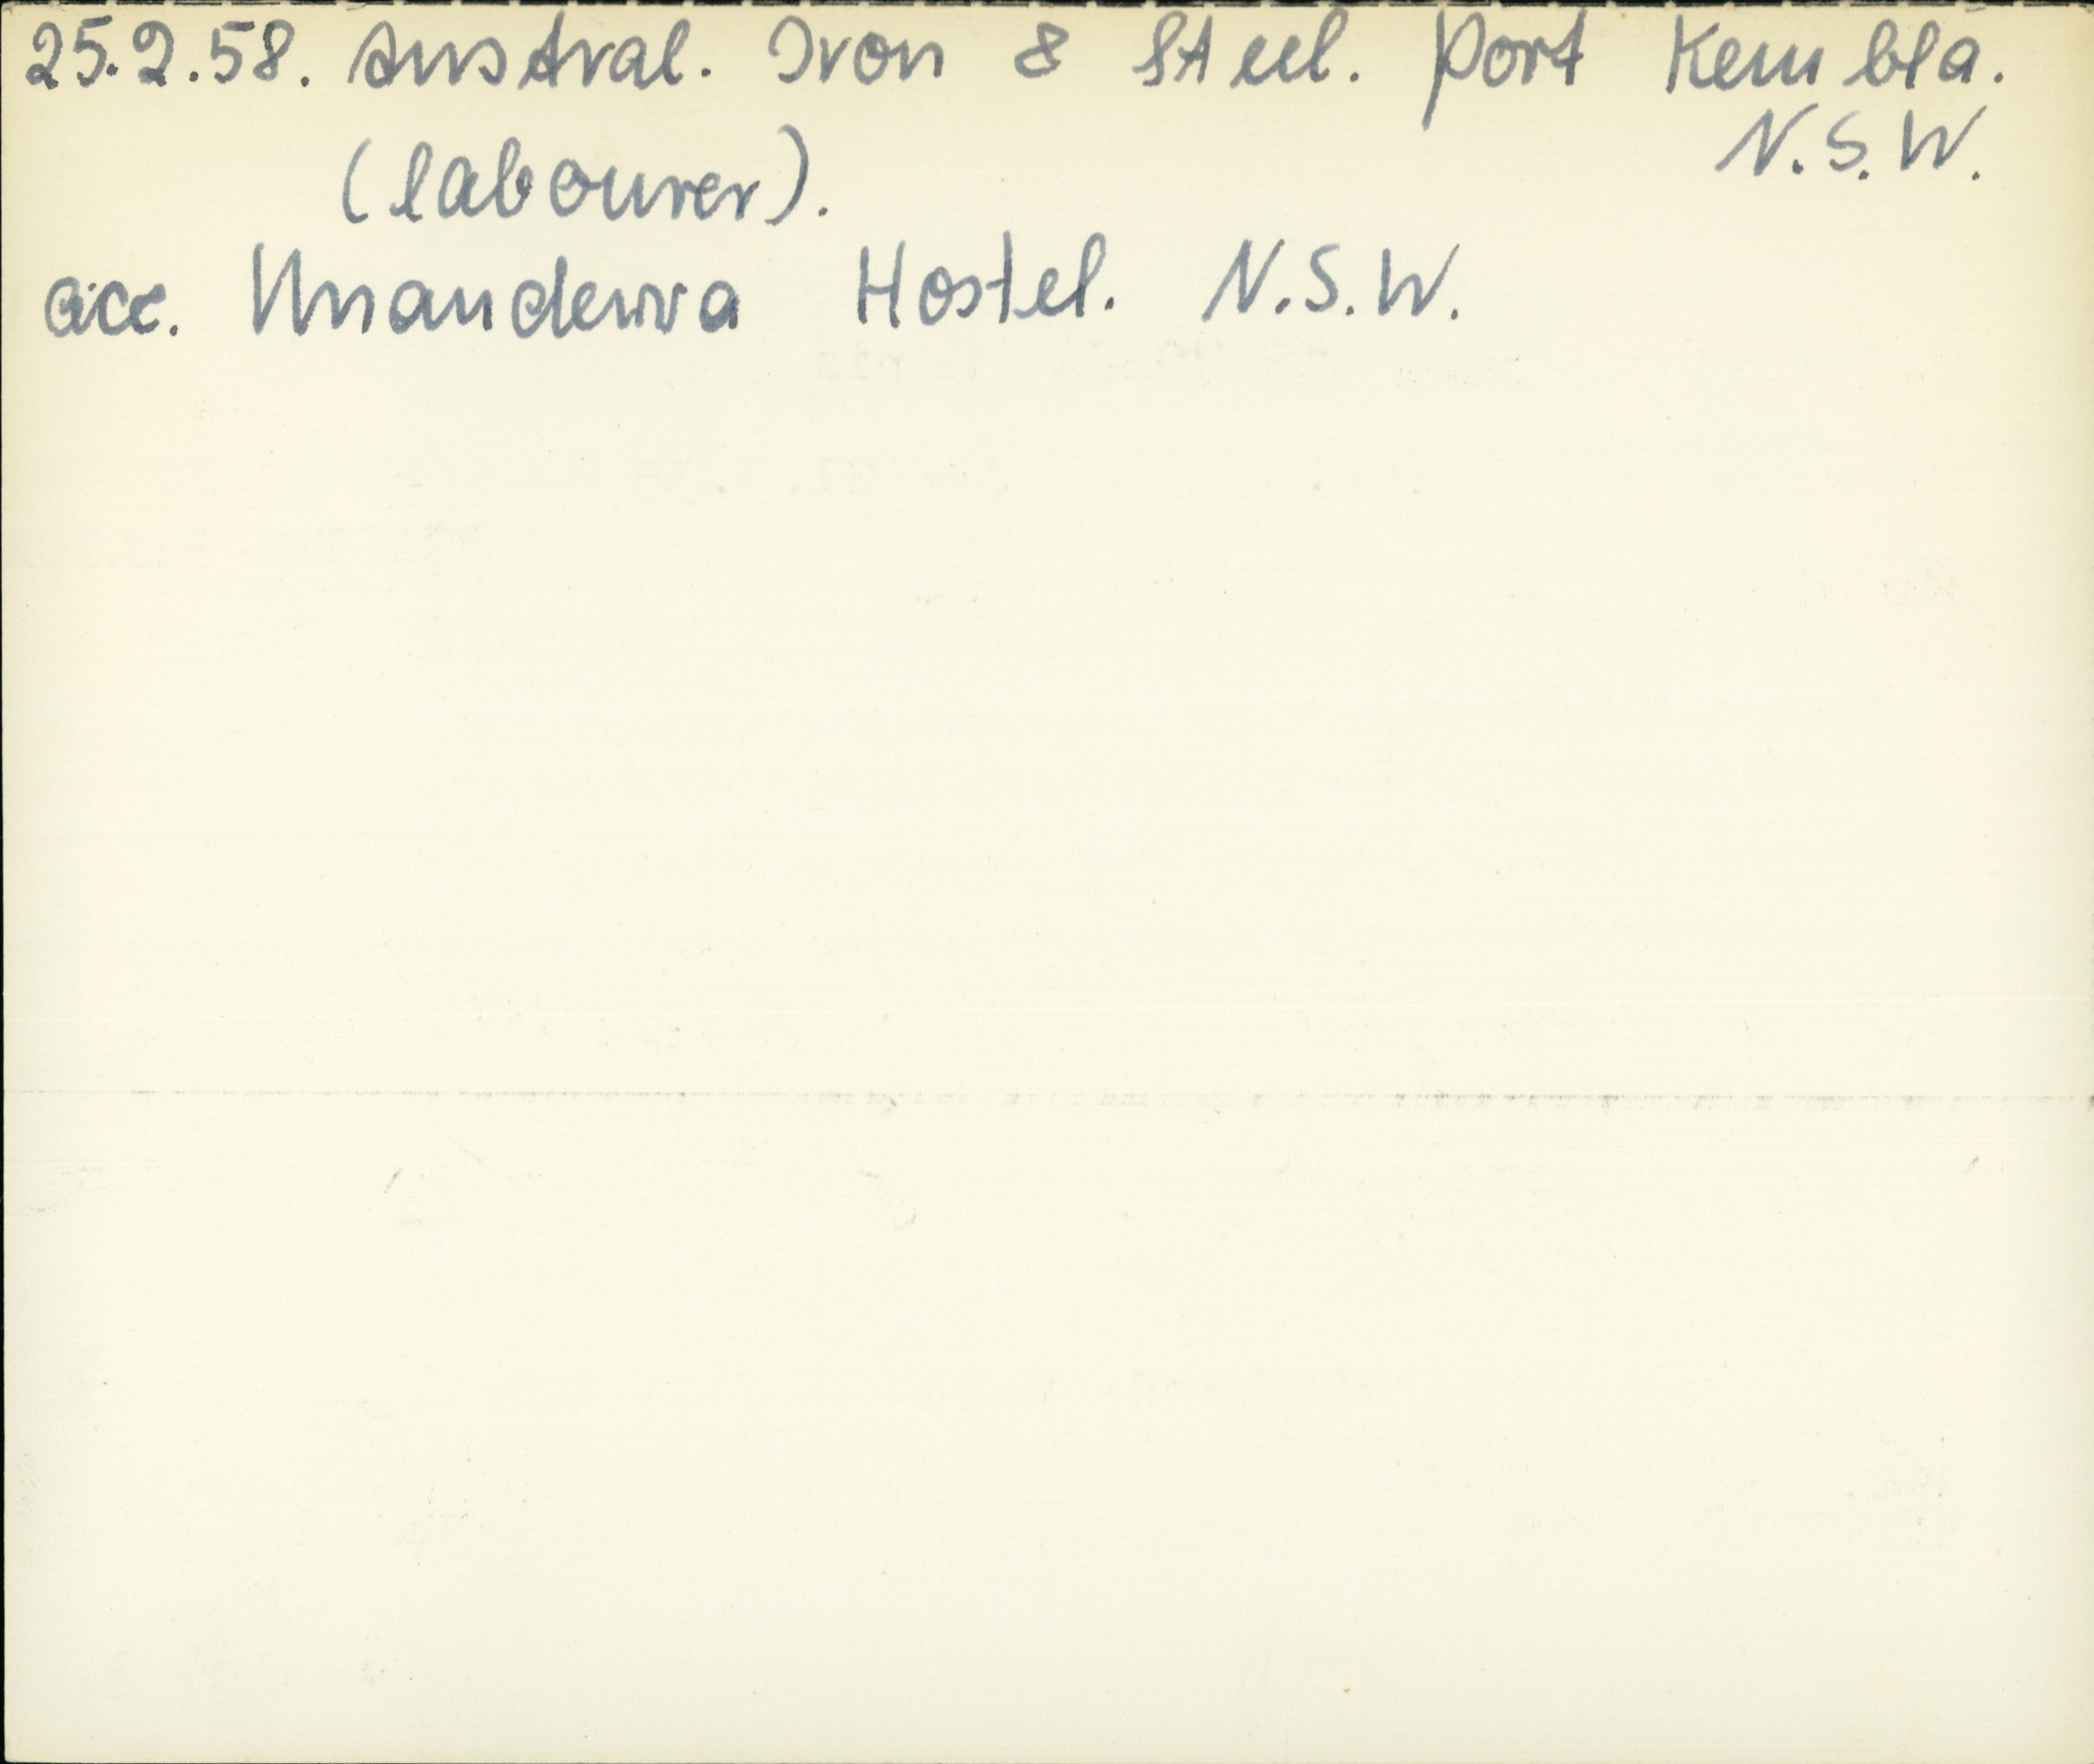 25.2.58. Austral. Iron & Steel. Port Kembla.
N.S.W.
(labourer).
acc. Unanderra Hostel. N.S.W.